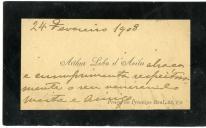 24 Fevereiro 1908
Arthur Lobo d'Avila abraça
e cumprimenta respeitosa
mente o seu venerando
mestre e Amigo
Praça do Principe Real,